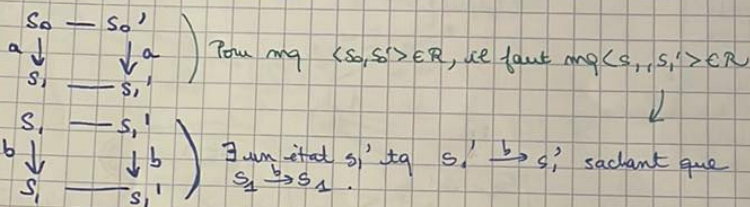 S₀ — S₀'
a ↓ ↓ a
S₁ — S₁'
Pour mq <S₀,S₀'> ∈ R, il faut mq <S₁,S₁'> ∈ R
S₁ — S₁'
b ↓ ↓ b
S₁ — S₁'
∃ un état s₁' tq s₁' -b-> s₁' sachant que
S₁ -b-> S₁.